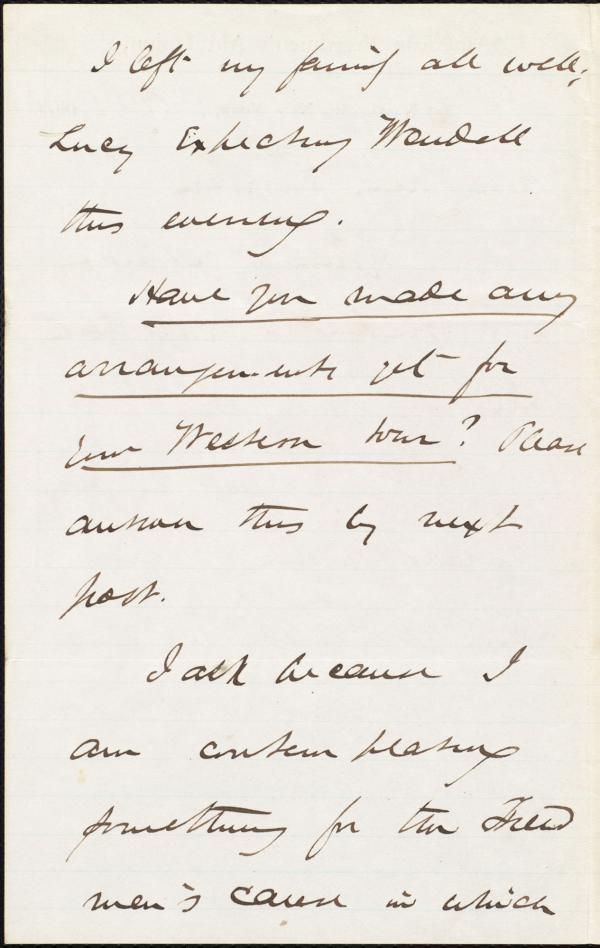 I left my family all well;
Lucy expecting Wendell
this evening.
Have you made any
arrangements yet for
your Western tour? Please
answer this by next
post.
I ask because I
am contemplating
something for the Freed
men's cause in which